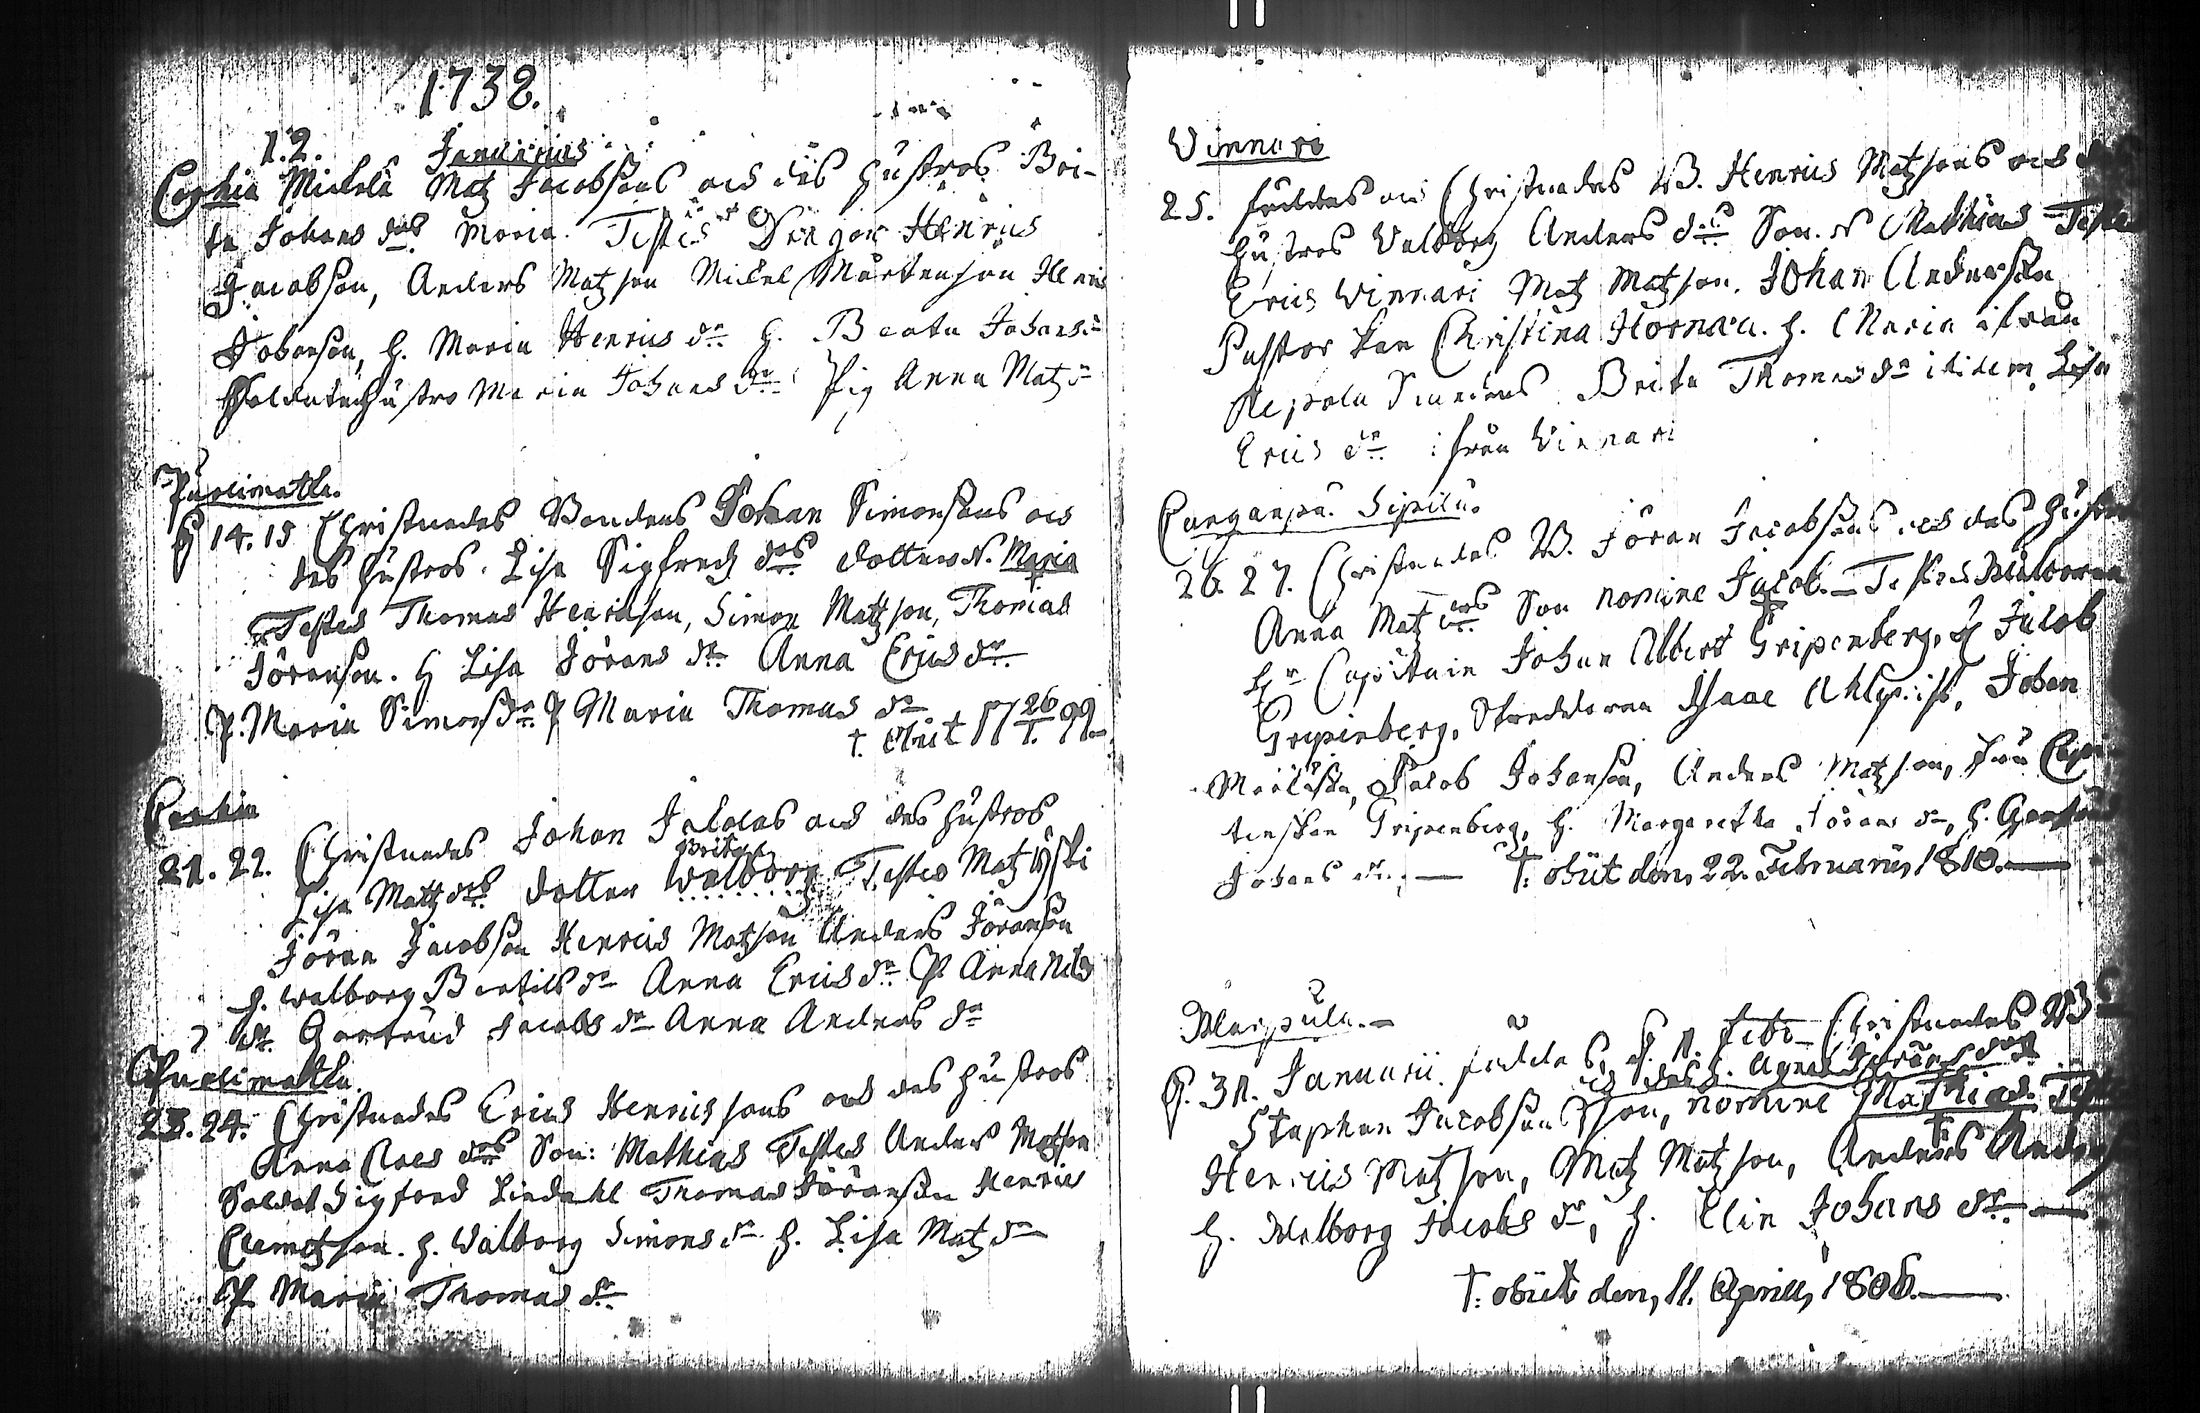 1738.
1.2. Januarius
Mickels Matz Jacobsons och des hustros Bri-
ta Johans das Maria. Testes Drengar Henrics
Jacobson, Anders Matzson Mickel Mårtenson Henric
Johanson, h. Maria Henrics dr h. Beata Johans dr
Soldatenhustro Maria Johans dr Pig Anna Matz dr
Purlimatka.
14. 15 Christnades Bondens Johan Simonsons och
des hustros Lisa Sigfredz das dotter N. Maria
Testes Thomas Henricson, Simon Matzson, Thomas
Jöranson. h Lisa Jörans dr Anna Erics dr
P. Maria Simons dr P Maria Thomas dr
† obiit 17 26/1. 99
21. 22. Christnades Johan och des hustros
Brita
Lisa Mattz das dotter Walborg Testes Matz
Jöran Jacobson Henrics Matzson Anders Jöranson
h. Walborg Bertils dr Anna Erics dr P. Anna Nils
dr. Gertrud Jacobs dr Anna Anders dr
Purlimatka.
23. 24. Christnades Erics Henricssons och des hustros
Anna Claes das Son: Mathias Testes Anders Matzson
Soldat Sigfred Lindahl Thomas Jöranson Henric
Clemetzson. h. Walborg Simons dr h. Lisa Matz dr
P. Maria Thomas dr
Vinnari
25. föddes och Christnades B. Henrics Matzsons och
hustros Walborg Anders das Son. N Mathias Testes
Erics Vinnari Matz Matzson. Johan Anderson
Pastor Christina Hornæa. h. Maria ifrån
Brita Thomas dr ibidem, Lisa
Erics dr ifrån Vinnari
Sipilä.
26. 27. Christnades B. Jöran Jacobsons och des hustros
Anna Matz das Son nomine Jacob. - Testes
Hr Capitain Johan Albert Gripenberg, H Jacob
Gripenberg, Isaac Ahlqvist, Johan
Jacob Johanson, Anders Matzson, Fru
Gripenberg, h. Margaretha Jörans dr, h. Gertrud
Johans dr. — †. obiit den, 22. Februarii, 1810. —
31. Januarii föddes, d. 1. Febr Christnades B
och des h. Agnes Jörans das
Staphan Jacobsons Son, nomine Mathias. Testes
Henrics Matzson, Matz Matzson, Anders Anders
h. Walborg Jacobs dr, h. Elin Johans dr —
†. obiit den, 11. April, 1806. —